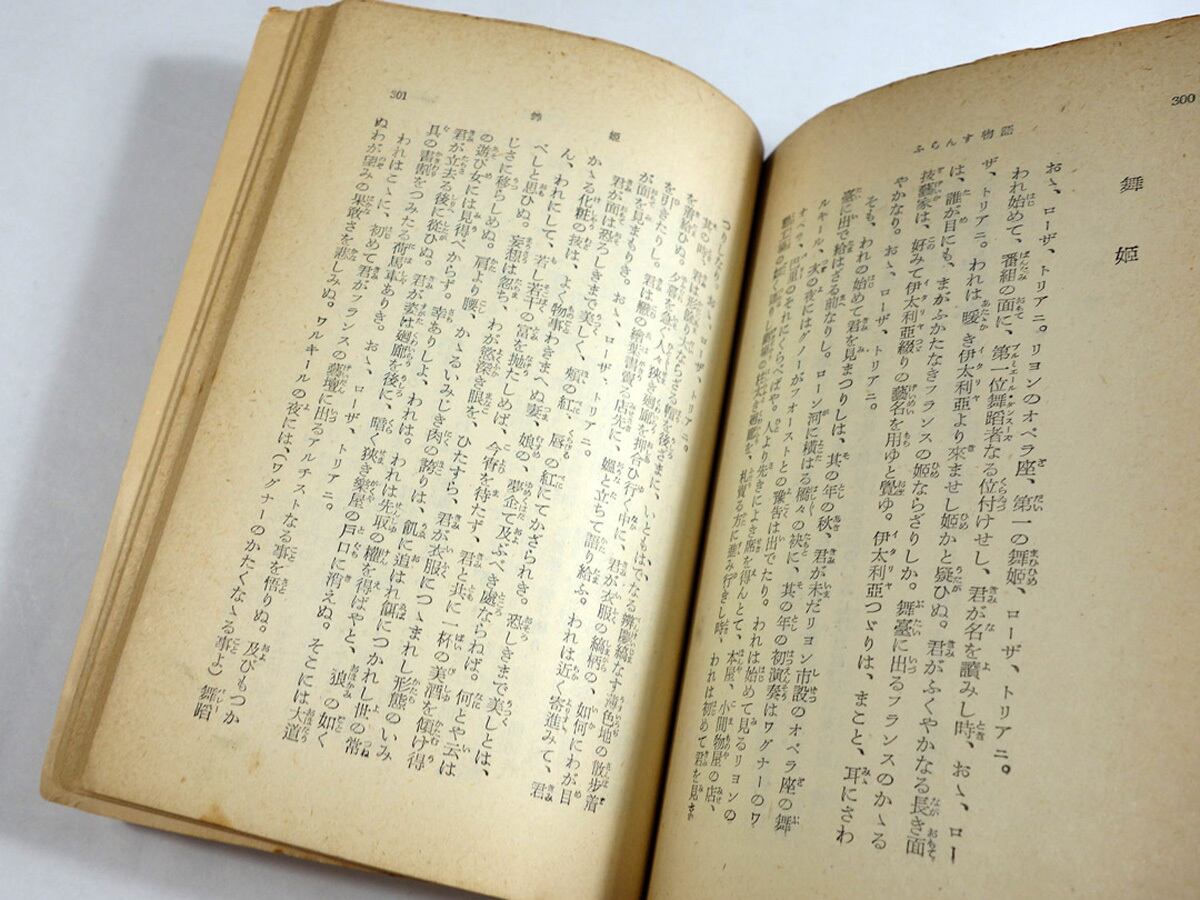 300
ふらんす物語
舞姫
おゝ、ローザ、トリアニ。リヨンのオペラ座、第一の舞姫、ローザ、トリアニ。
われ始めて、番組の面に、第一位舞蹈者なる位付けせし、君が名を讀みし時、おゝ、ロー
ザ、トリアニ。われは暖き伊太利亞より來ませし姫かと疑ひぬ。君がふくやかなる長き面
は、誰が目にも、まがふかたなきフランスの姫ならざりしか。舞臺に出るフランスのかゝる
技藝家は、好みて伊太利亞綴りの藝名を用ゆと覺ゆ。伊太利亞つゞりは、まこと、耳にさわ
やかなり。おゝ、ローザ、トリアニ。
そも、われの始めて君を見まつりしは、其の年の秋、君が未だリヨン市設のオペラ座の舞
臺に出で給はざる前なりし。ローン河に横はる橋々の袂に、其の年の初演奏はワグナーのワ
ルキール、次の夜にはグノーがフォーストとの豫告は出でたり。われは始めて見るリヨンの
オペラ、巴里のそれにくらべばや。人より先きによき席を得んとて、本屋、小間物屋の店、
札賣る方に進み行きし時、われは初めて君を見き
301
舞姫
つりしなり。おゝ、ローザ、トリアニ。
其の時、君は形餘り大ならざる帽を後ざまに、いともはでなる辨慶縞なす薄色地の散歩着
を着給ひぬ。夕餐を急ぐ人々、狹き廻廊を押合ひ行く中に、君が衣服の縞柄の、如何にわが目
を引きたりし。君は雁の繪葉書賣る店先に、媼と立ちて語り給ふ。われは近く寄進みて、君
が面を見まもりき。おゝ、ローザ、トリアニ。
君が面は恐ろしきまで美くしく、頰の紅、唇の紅にてかざられき。恐しきまで美しとは、
かゝる化粧の技は、よく物事わきまへぬ妻、娘の、夢企て及ぶべき處ならねば。何とや云は
ん、われにして、若し若干の富を抛たしめば、今宵を待たず、君と共に一杯の美酒を傾け得
べしと思ひぬ。妄想は忽ち、わが慾深き眼を、ひたすら、君が衣服につゝまれし形態のいみ
じさに移らしめぬ。肩より腰、かゝるいみじき肉の誇りは、飢に追はれ餌につかれし世の常
の遊び女には見得べからず。幸ありしよ、われは。われは先取の權を得ばやと、狼の如く
君が立去る後に從ひぬ。君が姿は廻廊を後に、暗く狹き樂屋の戸口に消えぬ。そこには大道
具の書割をつみたる荷馬車ありき。おゝ、ローザ、トリアニ。
われはこゝに、初めて君がフランスの藝壇に出るアルチストなる事を悟りぬ。及びもつか
ぬわが望みの果敢さを悲しみぬ。ワルキールの夜には、(ワグナーのかたくなゝる事よ)舞蹈